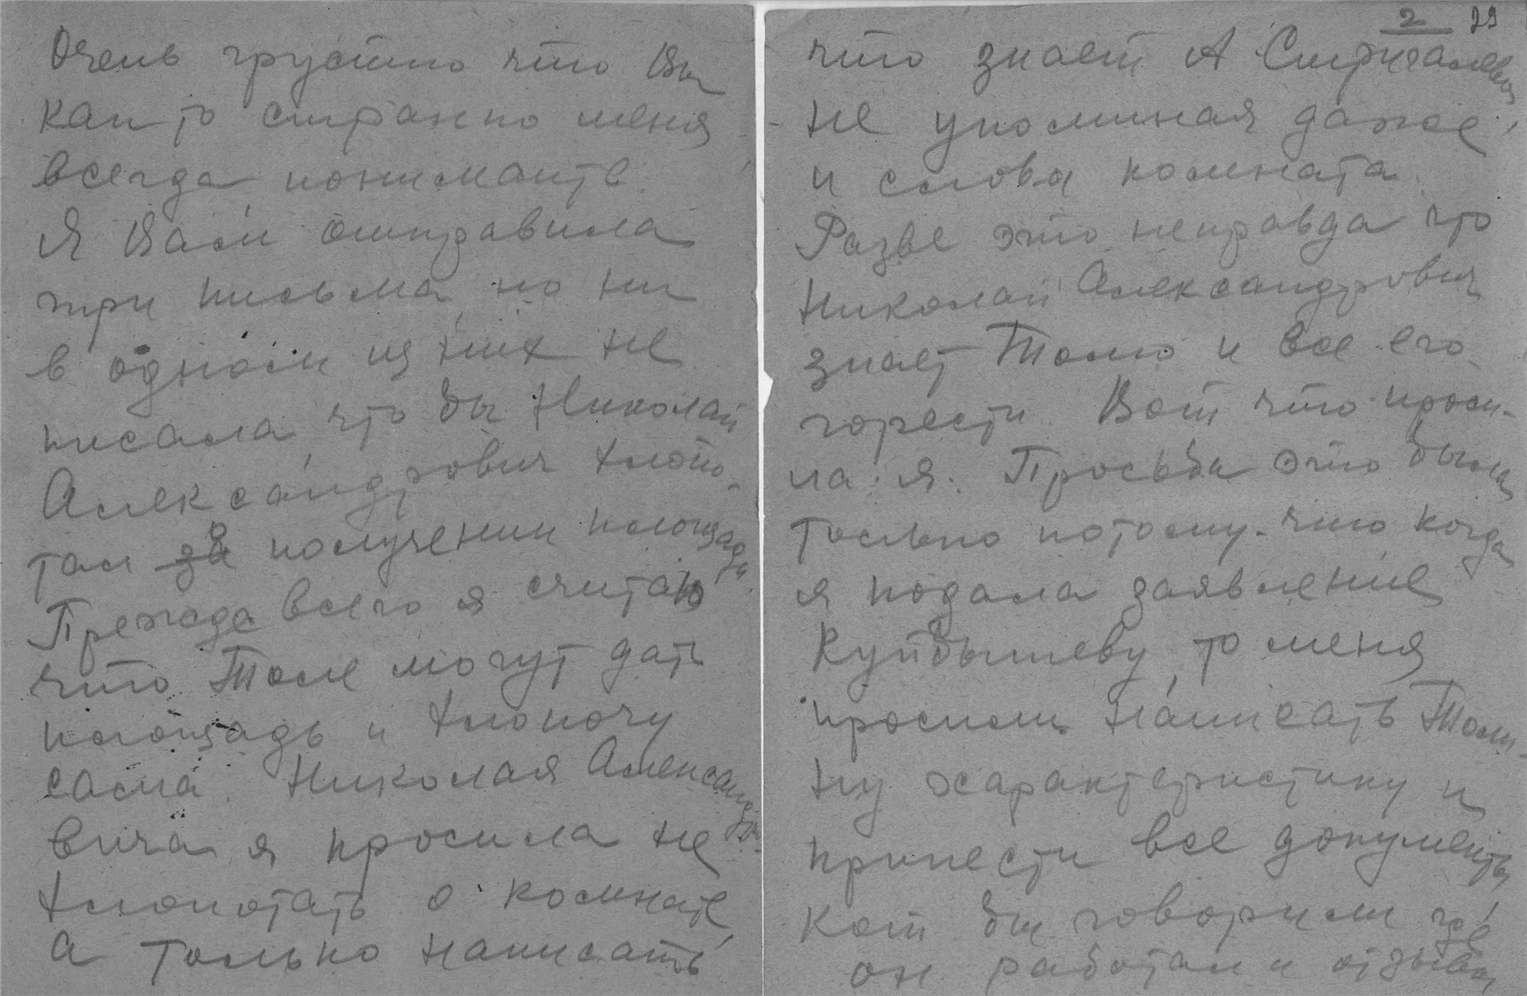 Очень грустно что Вы
как то странно меня
всегда понимаите.
Я Вам отправила
три письма, но ни
в одном из них не
писала, что бы Николай
Александрович хлопо-
тал о получении площади.
Прежде всего я считаю
что Толе могут дать
площадь и хлопочу
сама. Николая Александро-
вича я просила не
хлопотать о комнате
а только написать
2 29
что знает А Стригалева
не упоминая даже
и слова комната.
Разве это неправда что
Николай Александрович
знает Толю и все его
горести. Вот что проси-
ла я. Просьба эта была
только потому что когда
я подала заявление
Куйбышеву, то меня
просили написать Толи-
ну характеристику и
принести все документы,
кот. бы говорили где
он работал и отзывы